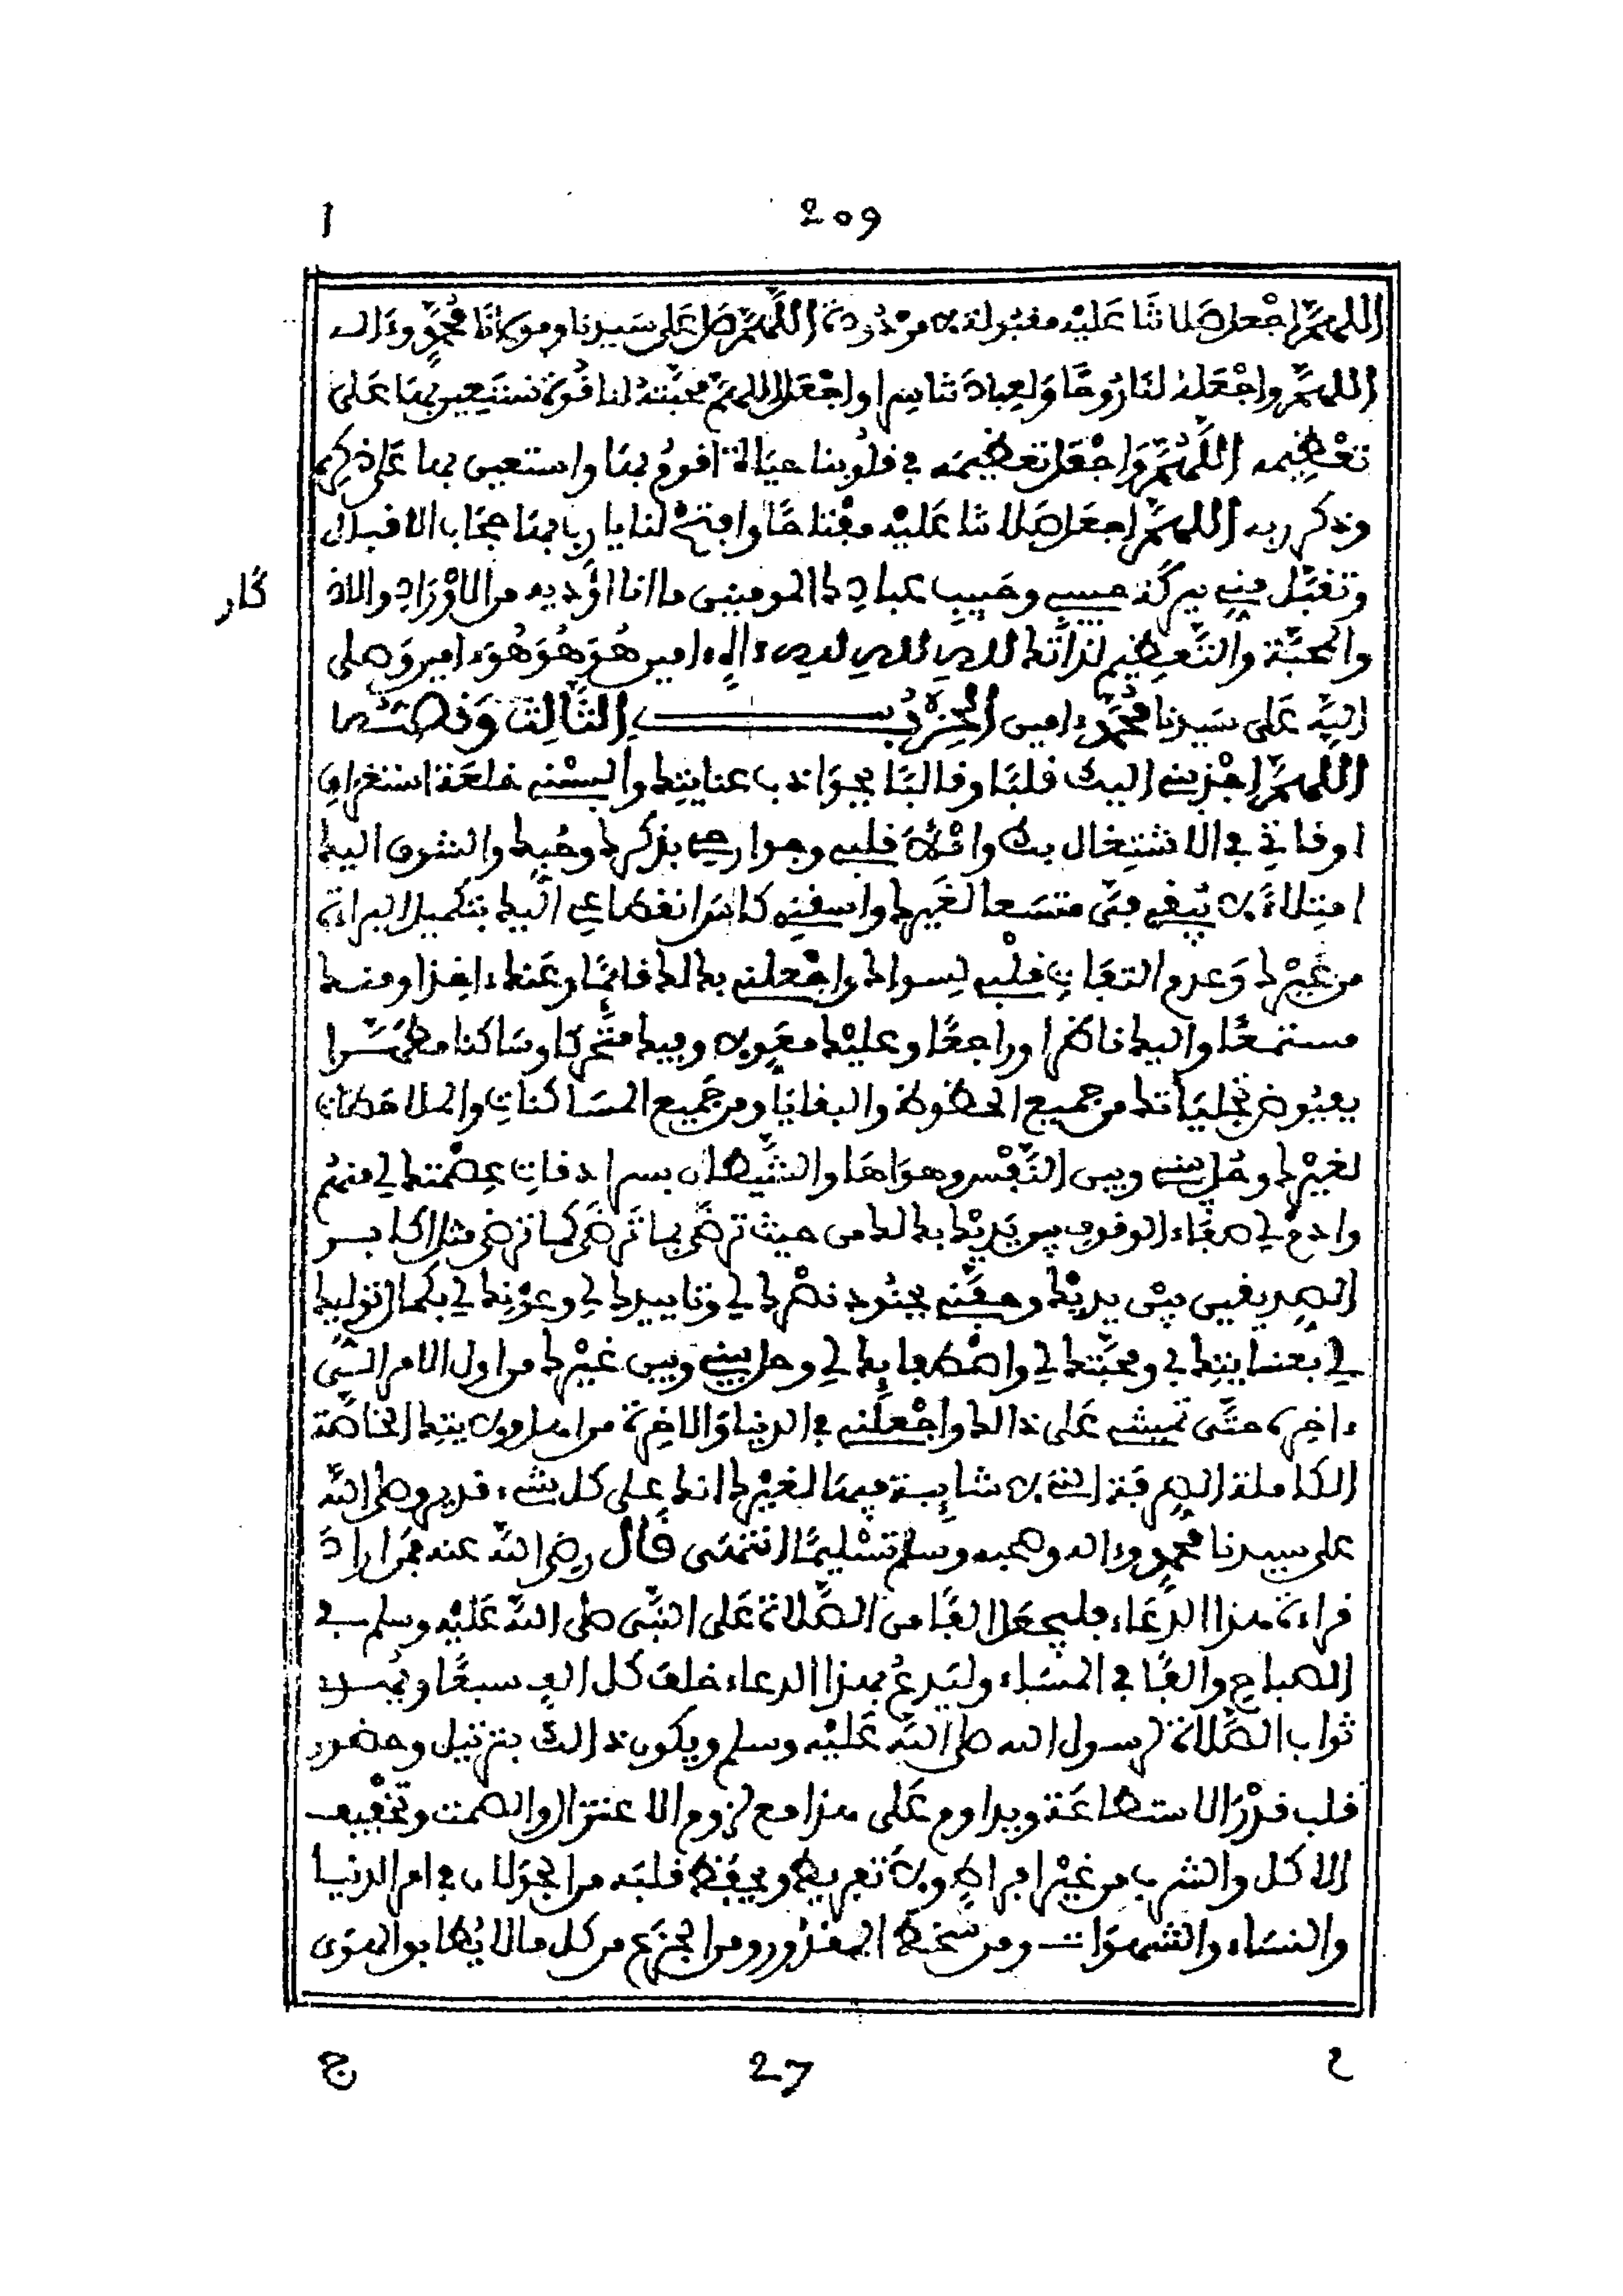 209
ا
اللهمَّ اجْعل صَلاتَنا عَلَيْه مقبُولة لا مرْدُودة اللَّهمَّ صَلِّ عَلى سَيدنا ومولانَا محُمَّدٍ وءَاله
اللهمَّ واجْعَلهُ لنَا رُوحًا وَلعِبادَتنا سِرا واجْعَل اللهمَّ محَبَّتهُ لنا قُوة نستَعِين بهَا عَلى
تعْظِيمه اللَّهُمَّ وَاجْعَل تعظِيمَه في قلُوبنا حيَاة أقومُ بهَا واستعين بها عَلى ذكرِه
وذكر ربه اللهمَّ اجعَل صَلاتنا عَليْه مِفْتاحًا وافتحْ لنا يا رب بهَا حِجَاب الاقبال
وتقبَّل مِنى ببركَة حبيبى وحَبيبِ عبادِك المومنين ما أنا أؤَديه من الاوْرَادِ والاذ
كَار
والمحبَّة والتَّعظِيم لذاتك للهِ للهِ للهِ ءالهِ ءامين هُوَ هُوَ هُوَ ءامين وَصلى
اللهُ عَلى سَيدنا محُمَّد ءامين الحِزْبُ الثَّالِث وَنصُّهُ
اللَّهمَّ اجْذبنى اليك قلبًا وقالبًا بجوَاذب عنايتِك وألبِسْنى خلعَة استغراق
اوقاتي في الاشتِغال بك وامْلأ قلبى وجوارحى بذكرك وحُبِك والشوق اليك
امتِلاءً لا يُبقى مِنى متسَعا لغَيرك واسقنِى كاسَ انقطاعى اليك بتكميل البراءة
من غيْرك وَعدم التفَات قلْبى لِسواك واجْعلنى بك لك قائمًا وعَنك ءاخِذا ومنك
مستمعًا واليك ناظرا وراجعًا وعليْك معَولا وفيك متَّحركا وسَاكنا مطهَّرا
بفيُوض تجَلِيَاتك من جميع الحظوظ والبقايَا ومن جَميع المسَاكناتِ والملاحَظاتِ
لغيْرك وحُل بينى وبين النَّفْس وهوَاهَا والشَّيطان بسرادقاتِ عِصْمتك لى منهُم
وادمْ لى صَفَاء الوقوف بين يَديْك بك لك من حيث ترضَى بما تَرضَى كما ترضى مثل اكابر
الصديقين بيْن يديْك وحفَّنى بجنُود نصْرك لي وتاييدك لي وعوْنك لي بكمال توليك
لي بعنايتِك بي ومحبَّتك لي واصْطفائك لي وحل بينى وبين غيْرك من اول الامر الى
ءاخِره حتَّى تميتنى عَلى ذالك واجْعلنى في الدنيا وَالاخِرة من اهل ولايتِك الخاصَّة
الكاملة الصِرفة التى لا شايبة فيهَا لغيْرك انك على كل شىء قدير وصلى اللهُ
على سيدنا محمدٍ وءاله وصحبه وسلم تسْليمًا انتهَى قَال رضى اللهُ عنه فمَن اراد
قراءة هذا الدعَاء فليجعَل الفًا من الصَّلاة عَلى النَّبى صلى اللهُ عَليْه وسلم في
الصباح والفًا في المسَاء وليَدعُ بهذا الدعاء خلفَ كل الفٍ سبعًا ويُهدى
ثواب الصَّلاة لرسول الله صلى اللهُ عَليْه وسلم ويكون ذالك بترتيل وحضور
قلب قدْرَ الاستطاعَة ويداوم عَلى هذا مع لزوم الاعتزال والصمت وتخْفيف
الاكل والشرب من غيْر افراطٍ ولا تَفريط ويحفَظ قلبَه من الجوَلان في امر الدنيا
والنسَاء والشهوَات ومن سَخط المقدُور ومن الجزع من كل ما لا يُطابق الهوَى
ج
27